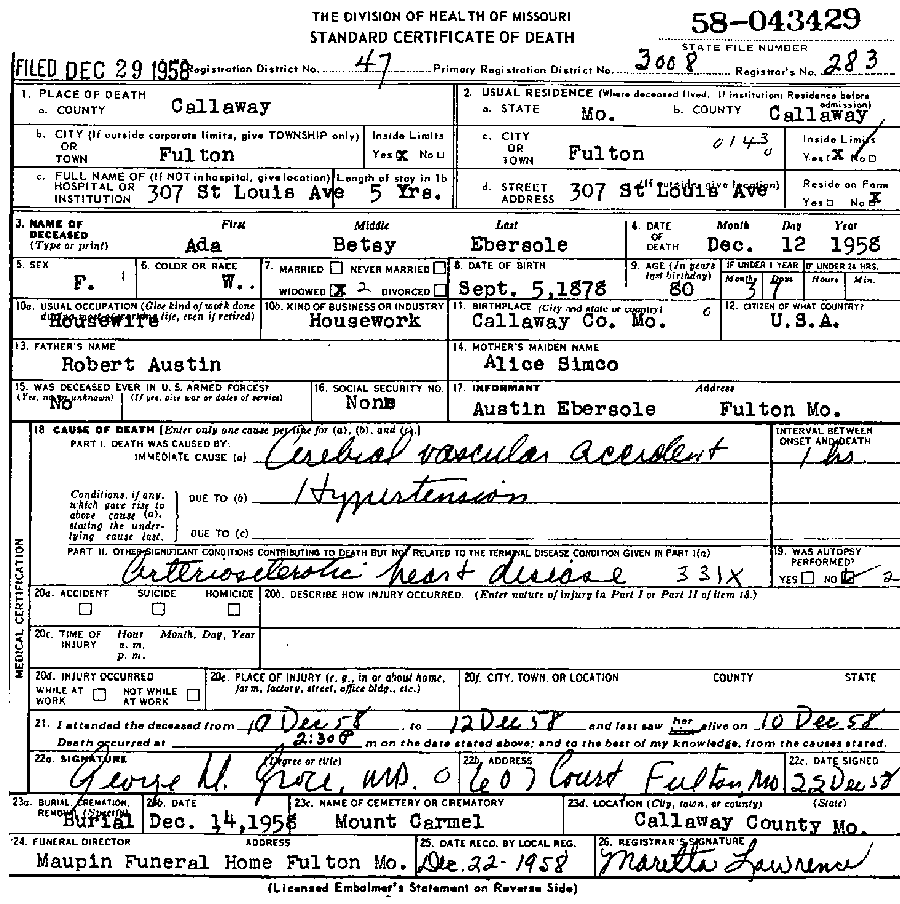 THE DIVISION OF HEALTH OF MISSOURI
58-043429
STANDARD CERTIFICATE OF DEATH
STATE FILE NUMBER
FILED DEC 29 1958 Registration District No. 47 Primary Registration District No. 3008 Registrar's No. 283
1. PLACE OF DEATH
a. COUNTY Callaway
2. USUAL RESIDENCE (Where deceased lived. If institution: Residence before admission)
a. STATE Mo. b. COUNTY Callaway
b. CITY (If outside corporate limits, give TOWNSHIP only) OR TOWN Fulton
Inside Limits Yes X No
c. CITY OR TOWN Fulton 0143 0
Inside Limits Yes X No
c. FULL NAME OF (If NOT in hospital, give location) HOSPITAL OR INSTITUTION 307 St Louis Ave
Length of stay in 1b 5 Yrs.
d. STREET ADDRESS (If outside, give location) 307 St Louis Ave
Reside on Farm Yes No X
3. NAME OF DECEASED (Type or print)
First Middle Last
Ada Betsy Ebersole
4. DATE OF DEATH
Month Day Year
Dec. 12 1958
5. SEX F.
6. COLOR OR RACE W.
7. MARRIED NEVER MARRIED
WIDOWED X 2 DIVORCED
8. DATE OF BIRTH Sept. 5,1878
9. AGE (In years last birthday) 80
IF UNDER 1 YEAR Months 3 Days 7
IF UNDER 24 HRS. Hours Min.
10a. USUAL OCCUPATION (Give kind of work done during most of working life, even if retired) Housewife
10b. KIND OF BUSINESS OR INDUSTRY Housework
11. BIRTHPLACE (City and state or country) Callaway Co. Mo. 0
12. CITIZEN OF WHAT COUNTRY? U.S.A.
13. FATHER'S NAME Robert Austin
14. MOTHER'S MAIDEN NAME Alice Simco
15. WAS DECEASED EVER IN U.S. ARMED FORCES? (Yes, no, or unknown) (If yes, give war or dates of service) No
16. SOCIAL SECURITY NO. None
17. INFORMANT Address
Austin Ebersole Fulton Mo.
MEDICAL CERTIFICATION
18. CAUSE OF DEATH (Enter only one cause per line for (a), (b), and (c).)
INTERVAL BETWEEN ONSET AND DEATH
PART I. DEATH WAS CAUSED BY:
IMMEDIATE CAUSE (a) Cerebral vascular accident 1 hr
Conditions, if any, which gave rise to above cause (a), stating the underlying cause last.
DUE TO (b) Hypertension
DUE TO (c)
PART II. OTHER SIGNIFICANT CONDITIONS CONTRIBUTING TO DEATH BUT NOT RELATED TO THE TERMINAL DISEASE CONDITION GIVEN IN PART I(a)
Arteriosclerotic heart disease 331X
19. WAS AUTOPSY PERFORMED? YES NO 2
20a. ACCIDENT SUICIDE HOMICIDE
20b. DESCRIBE HOW INJURY OCCURRED. (Enter nature of injury in Part I or Part II of item 18.)
20c. TIME OF INJURY Hour Month, Day, Year
a. m.
p. m.
20d. INJURY OCCURRED
WHILE AT WORK NOT WHILE AT WORK
20e. PLACE OF INJURY (e. g., in or about home, farm, factory, street, office bldg., etc.)
20f. CITY, TOWN, OR LOCATION COUNTY STATE
21. I attended the deceased from 10 Dec 58 to 12 Dec 58 and last saw her alive on 10 Dec 58
Death occurred at 2:30P m on the date stated above; and to the best of my knowledge, from the causes stated.
22a. SIGNATURE (Degree or title) George M. MD. 0
22b. ADDRESS 607 Court Fulton, Mo
22c. DATE SIGNED 22 Dec 58
23a. BURIAL, CREMATION, REMOVAL (Specify) Burial
23b. DATE Dec. 14,1958
23c. NAME OF CEMETERY OR CREMATORY Mount Carmel
23d. LOCATION (City, town, or county) (State) Callaway County Mo.
24. FUNERAL DIRECTOR ADDRESS
Maupin Funeral Home Fulton Mo.
25. DATE RECD. BY LOCAL REG. Dec 22-1958
26. REGISTRAR'S SIGNATURE Maretta Lawrence
(Licensed Embalmer's Statement on Reverse Side)